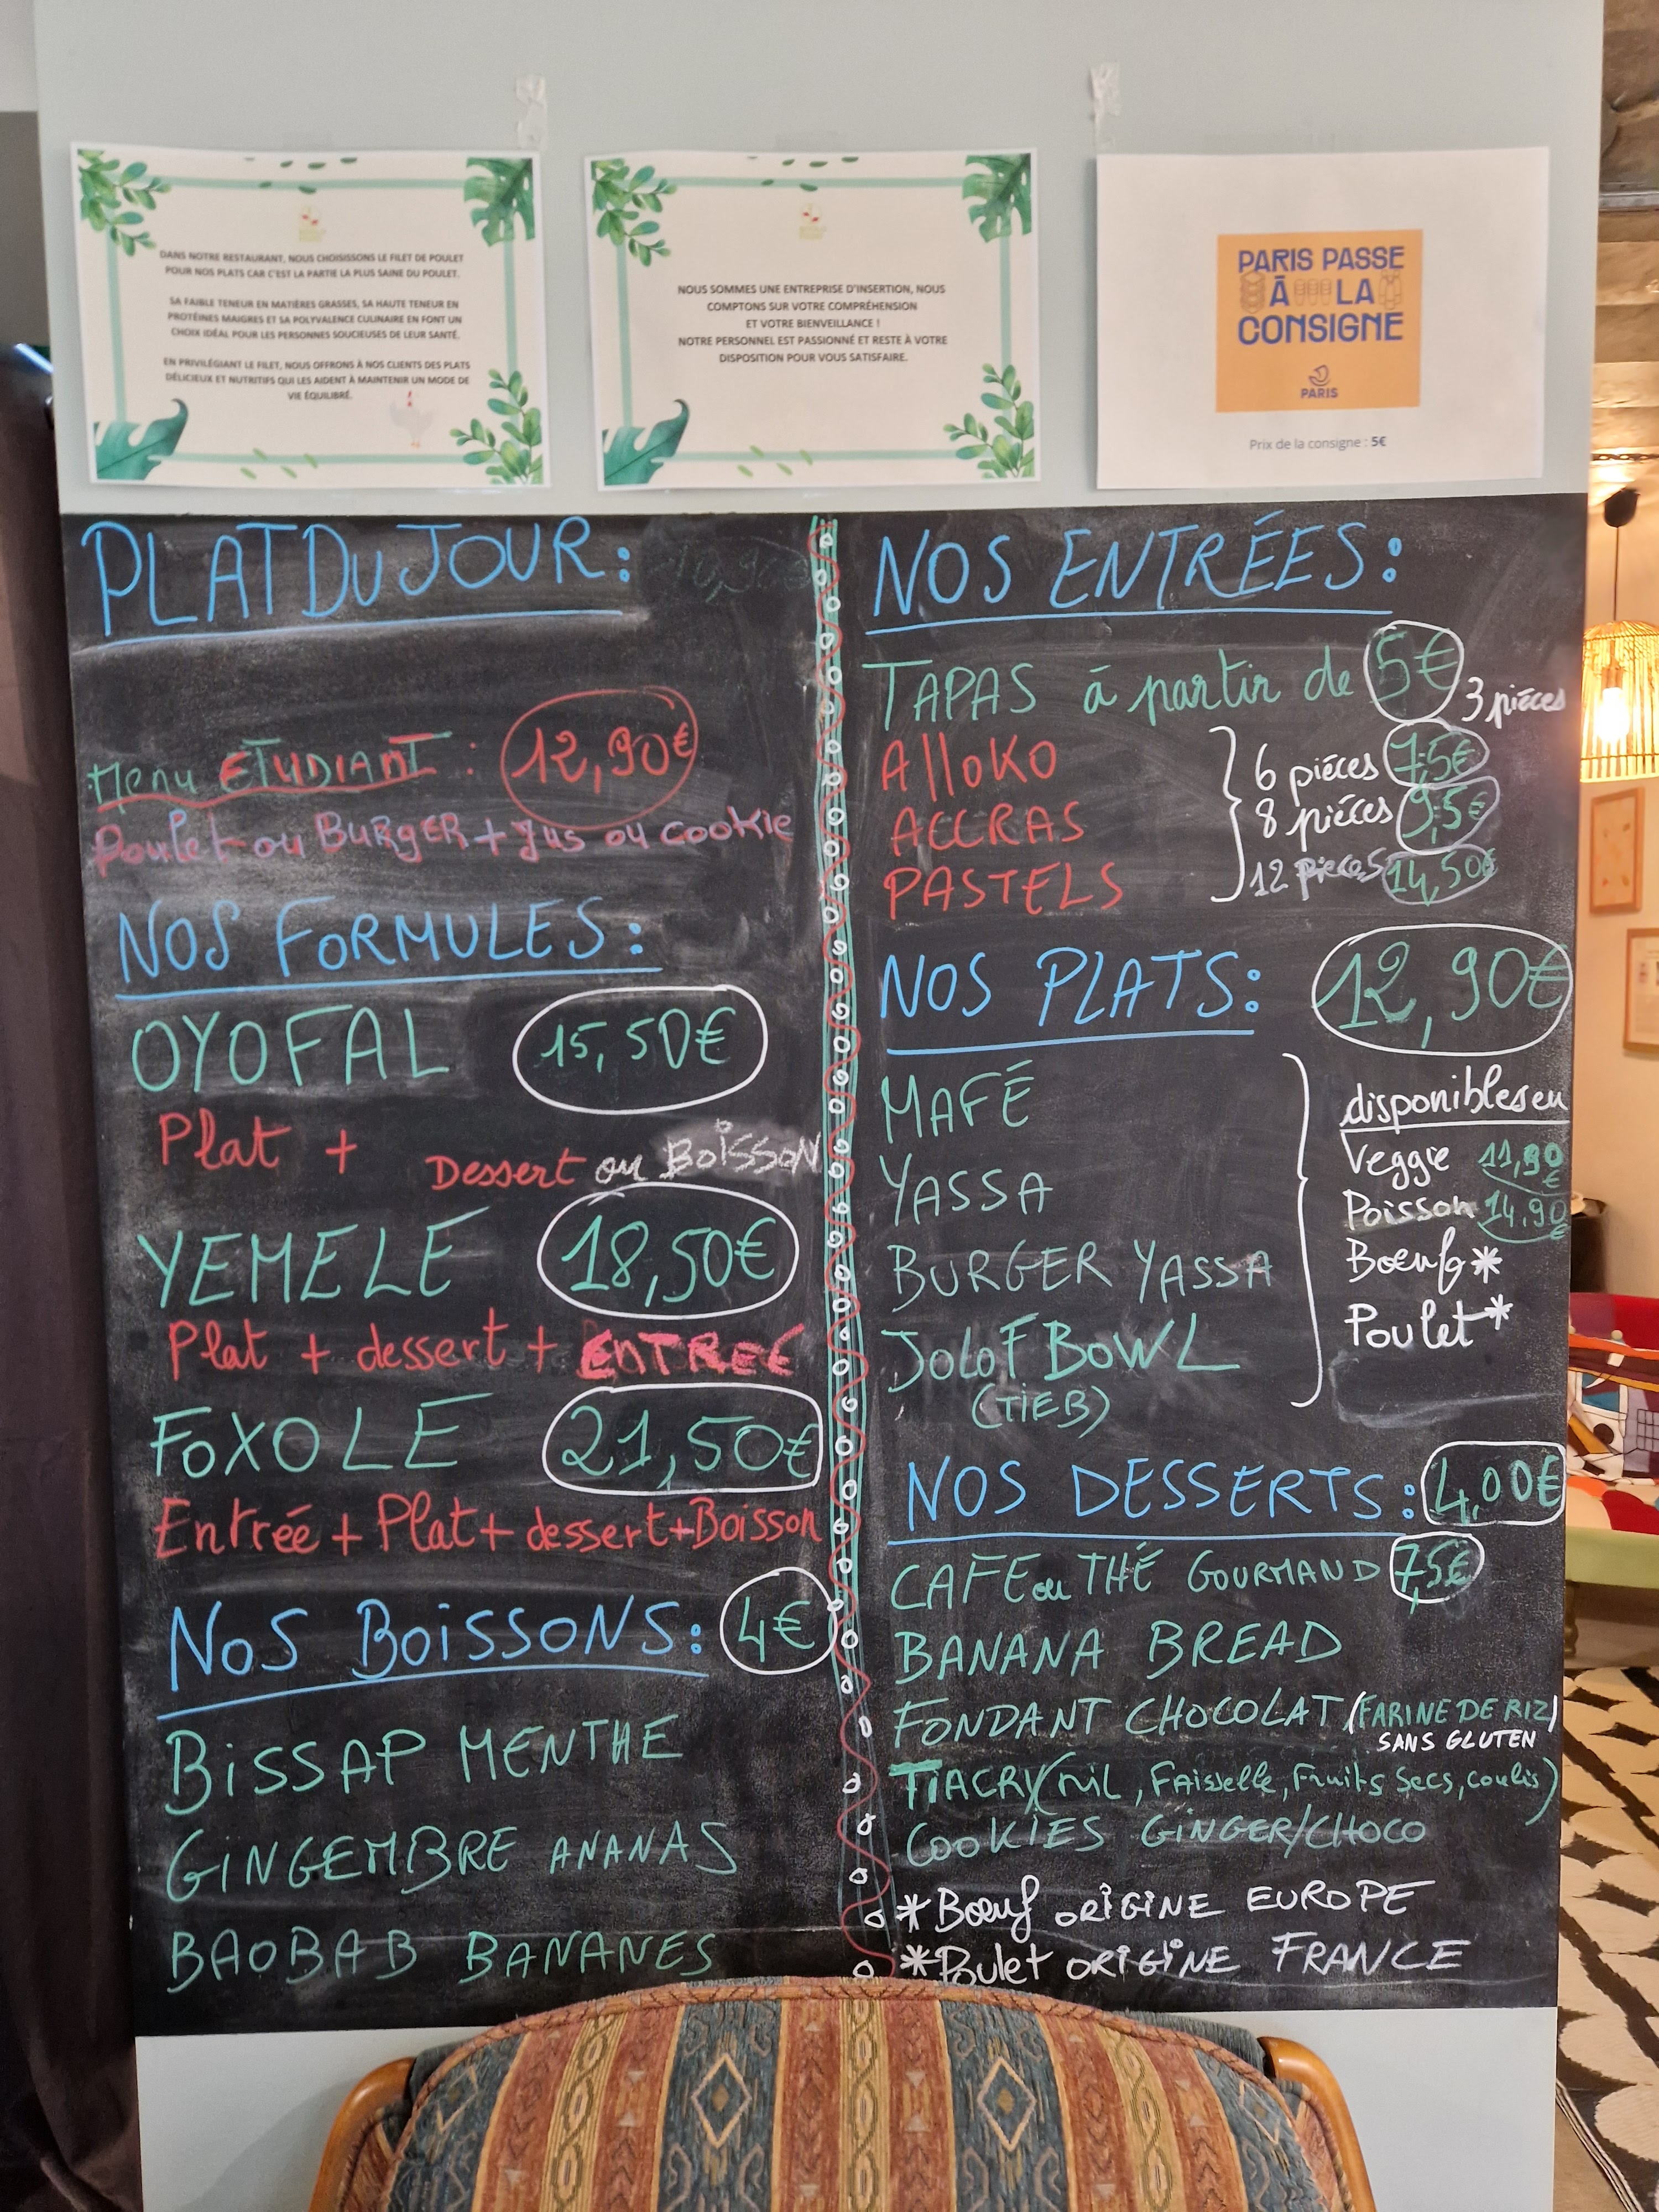 DANS NOTRE RESTAURANT, NOUS CHOISISSONS LE FILET DE POULET
POUR NOS PLATS CAR C'EST LA PARTIE LA PLUS SAINE DU POULET.
SA FAIBLE TENEUR EN MATIÈRES GRASSES, SA HAUTE TENEUR EN
PROTÉINES MAIGRES ET SA POLYVALENCE CULINAIRE EN FONT UN
CHOIX IDÉAL POUR LES PERSONNES SOUCIEUSES DE LEUR SANTÉ.
EN PRIVILÉGIANT LE FILET, NOUS OFFRONS À NOS CLIENTS DES PLATS
DÉLICIEUX ET NUTRITIFS QUI LES AIDENT À MAINTENIR UN MODE DE
VIE ÉQUILIBRÉ.
NOUS SOMMES UNE ENTREPRISE D'INSERTION, NOUS
COMPTONS SUR VOTRE COMPRÉHENSION
ET VOTRE BIENVEILLANCE !
NOTRE PERSONNEL EST PASSIONNÉ ET RESTE À VOTRE
DISPOSITION POUR VOUS SATISFAIRE.
PARIS PASSE
À LA
CONSIGNE
PARIS
Prix de la consigne : 5€
PLAT DU JOUR :
Menu ETUDIANT : 12,90€
Poulet ou BURGER + Jus ou cookie
NOS FORMULES :
OYOFAL 15,50€
Plat + Dessert ou BOISSON
YEMELE 18,50€
Plat + dessert + ENTREE
FOXOLE 21,50€
Entrée + Plat + dessert + Boisson
NOS BOISSONS : 4€
BISSAP MENTHE
GINGEMBRE ANANAS
BAOBAB BANANES
NOS ENTRÉES :
TAPAS à partir de 5€ 3 piéces
AlloKO 6 piéces 7,5€
ACCRAS 8 piéces 9,5€
PASTELS 12 pieces 14,50€
NOS PLATS : 12,90€
MAFÉ
YASSA
BURGER YASSA
JOLOF BOWL
(TIEB)
disponibles en
Veggie 11,90€
Poisson 14,90€
Bœuf*
Poulet*
NOS DESSERTS : 4,00€
CAFE ou THÉ GOURMAND 7,5€
BANANA BREAD
FONDANT CHOCOLAT (FARINE DE RIZ)
SANS GLUTEN
TIACRY (mil, Faisselle, Fruits Secs, coulis)
COOKIES GINGER/CHOCO
*Bœuf ORIGINE EUROPE
*Poulet ORIGINE FRANCE